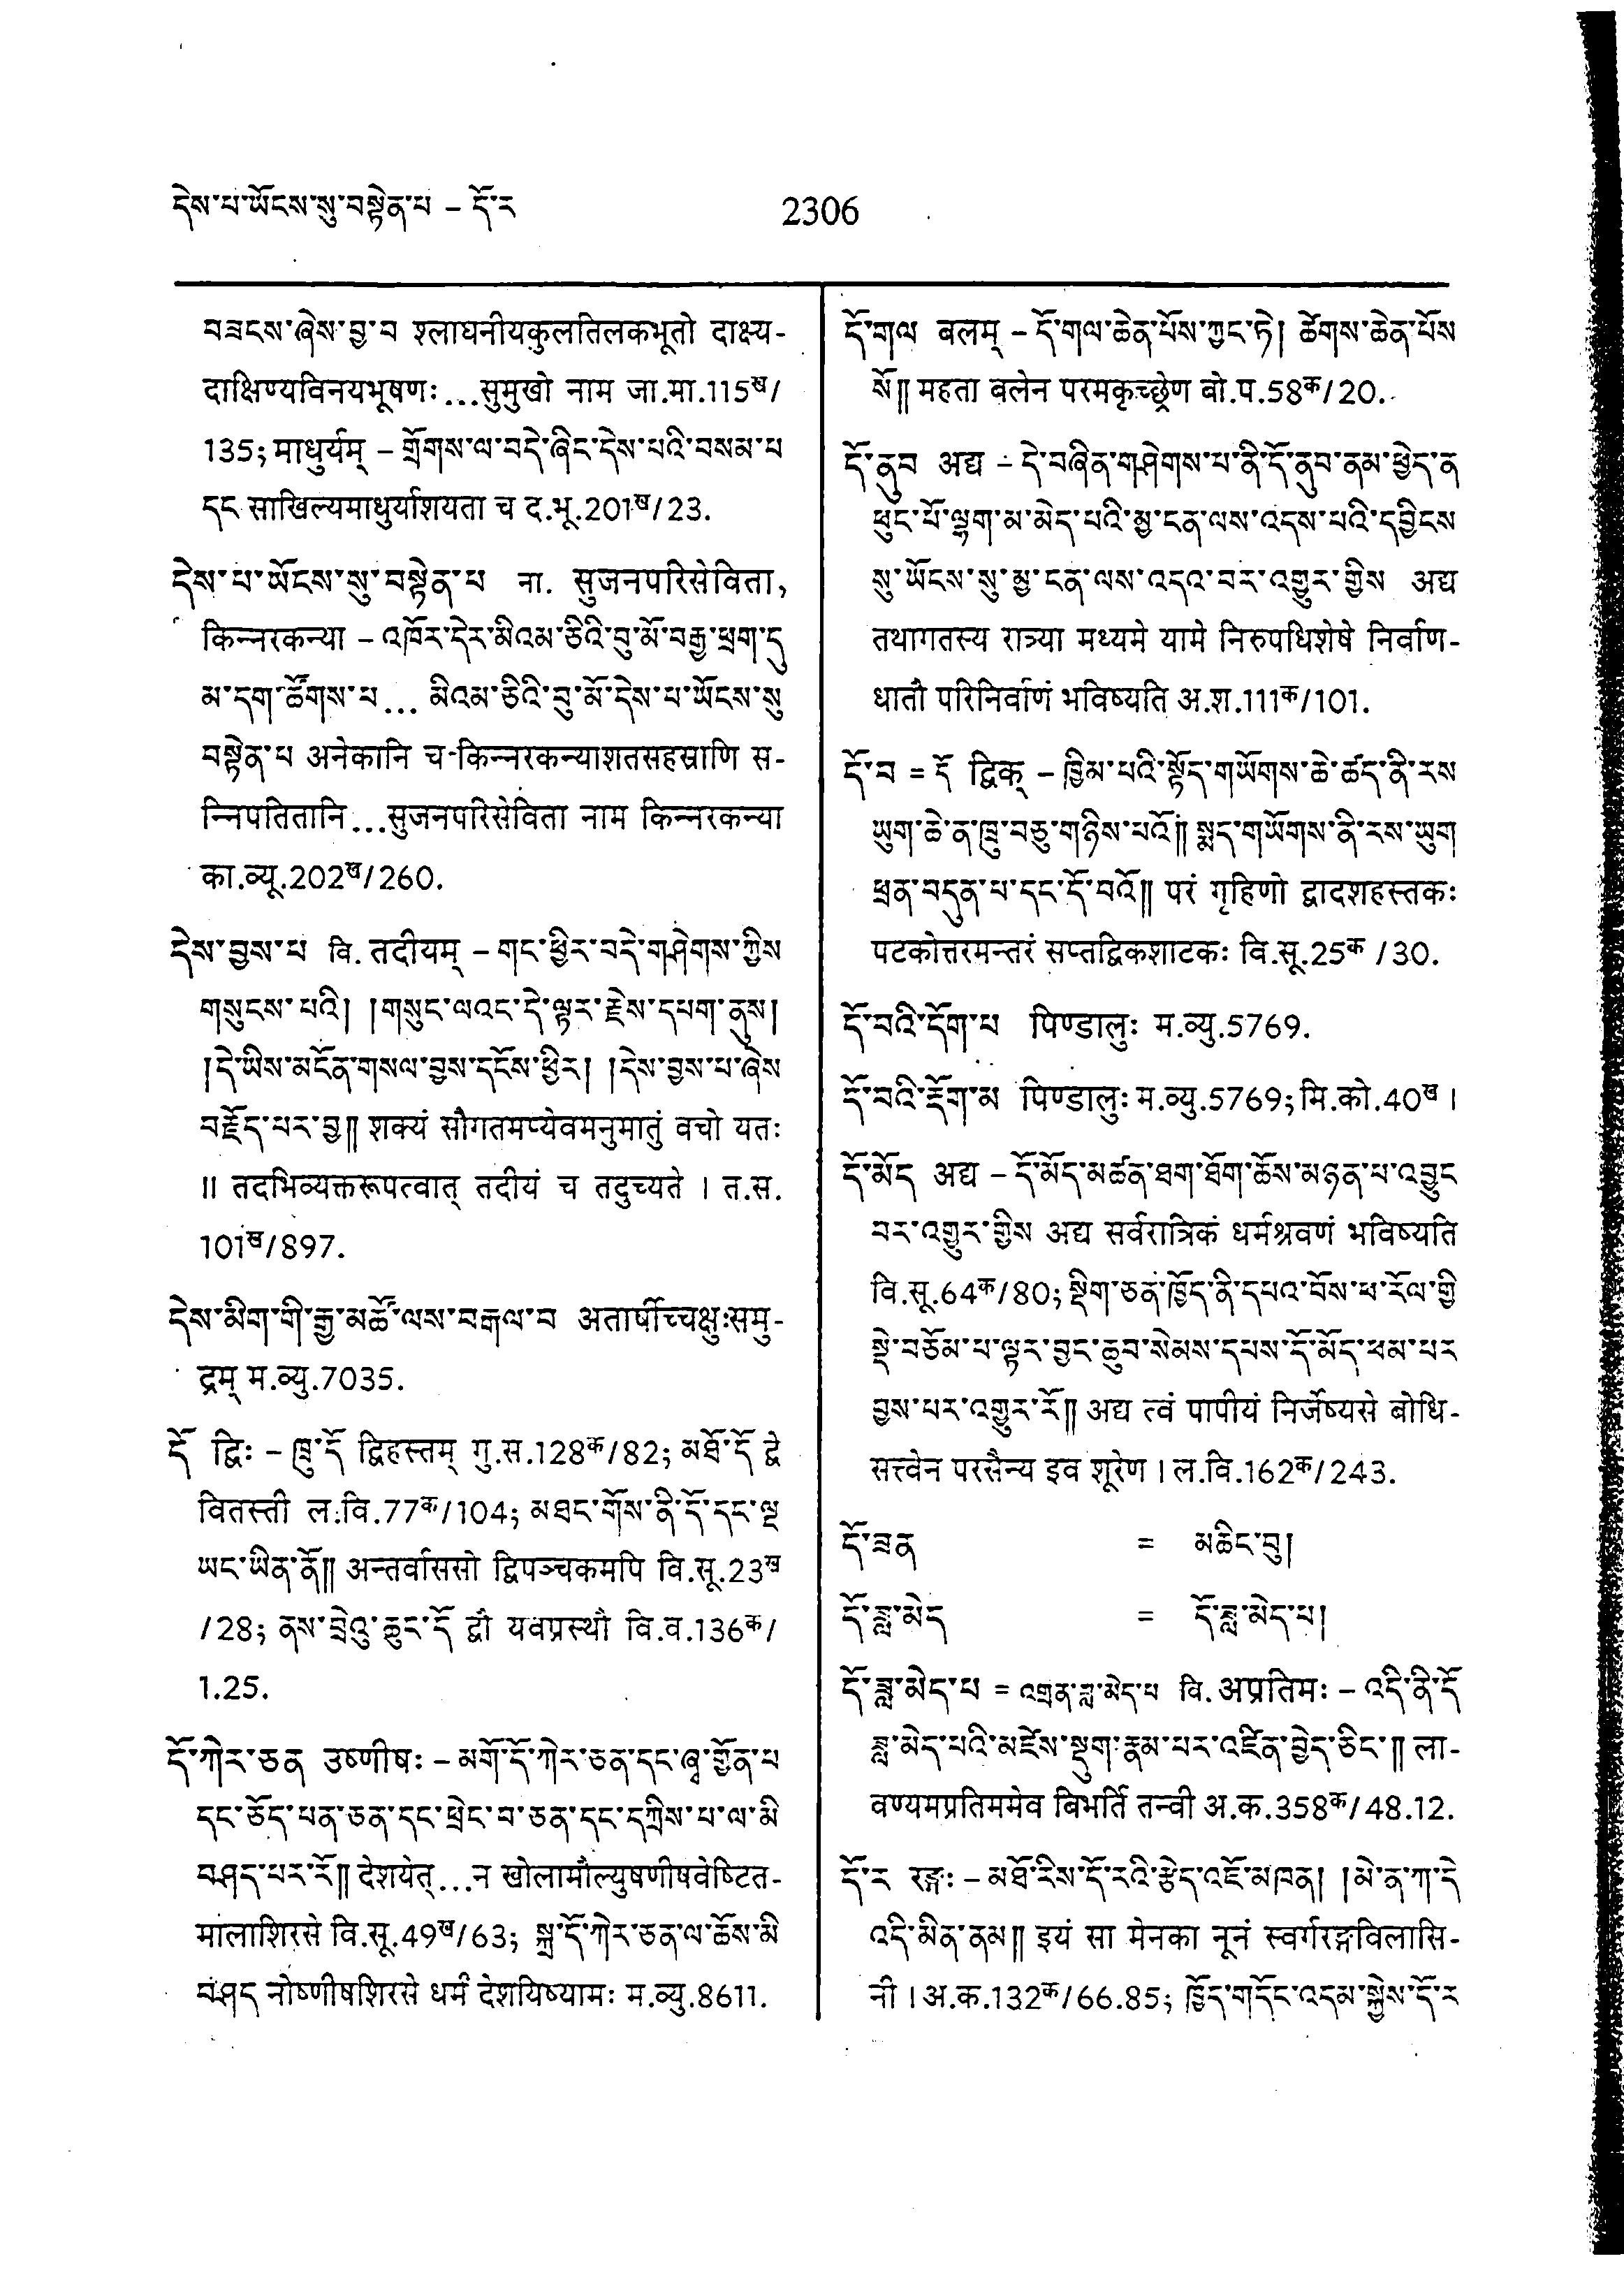 དེས་པ་ཡོངས་སུ་བསྟེན་པ – དོ་ར
2306
བཟངས་ཞེས་བྱ་བ श्लाघनीयकुलतिलकभूतो दाक्ष्य-
दाक्षिण्यविनयभूषणः...सुमुखो नाम जा.मा.115ख/
135; माधुर्यम् – གྲོགས་ལ་བདེ་ཞིང་དེས་པའི་བསམ་པ
དང साखिल्यमाधुर्याशयता च द.भू.201ख/23.
དེས་པ་ཡོངས་སུ་བསྟེན་པ ना. सुजनपरिसेविता,
किन्नरकन्या – འཁོར་དེར་མིའམ་ཅིའི་བུ་མོ་བརྒྱ་ཕྲག་དུ
མ་དག་ཚོགས་པ... མིའམ་ཅིའི་བུ་མོ་དེས་པ་ཡོངས་སུ
བསྟེན་པ अनेकानि च किन्नरकन्याशतसहस्राणि स-
न्निपतितानि...सुजनपरिसेविता नाम किन्नरकन्या
का.व्यू.202ख/260.
དེས་བྱས་པ वि. तदीयम् – གང་ཕྱིར་བདེ་གཤེགས་ཀྱིས
གསུངས་པའི། །གསུང་ལའང་དེ་ལྟར་རྗེས་དཔག་ནུས།
།དེ་ཡིས་མངོན་གསལ་བྱས་དངོས་ཕྱིར། །དེས་བྱས་པ་ཞེས
བརྗོད་པར་བྱ༎ शक्यं सौगतमप्येवमनुमातुं वचो यतः
॥ तदभिव्यक्तरूपत्वात् तदीयं च तदुच्यते । त.स.
101ख/897.
དེས་མིག་གི་རྒྱ་མཚོ་ལས་བརྒལ་བ अतार्षीच्चक्षुःसमु-
द्रम् म.व्यु.7035.
དོ द्विः – ཁྲུ་དོ द्विहस्तम् गु.स.128क/82; མཐོ་དོ द्वे
वितस्ती ल.वि.77क/104; མཐང་གོས་ནི་དོ་དང་ལྔ
ཡང་ཡིན་ནོ༎ अन्तर्वाससो द्विपञ्चकमपि वि.सू.23ख
/28; ནས་བྲེའུ་ཆུང་དོ द्वौ यवप्रस्थौ वि.व.136क/
1.25.
དོ་ཀེར་ཅན उष्णीषः – མགོ་དོ་ཀེར་ཅན་དང་ཞྭ་གྱོན་པ
དང་ཅོད་པན་ཅན་དང་ཕྲེང་བ་ཅན་དང་དཀྲིས་པ་ལ་མི
བཤད་པར་རོ༎ देशयेत्...न खोलामौल्युषणीषवेष्टित-
मालाशिरसे वि.सू.49ख/63; སྐྲ་དོ་ཀེར་ཅན་ལ་ཆོས་མི
བཤད नोष्णीषशिरसे धर्मं देशयिष्यामः म.व्यु.8611.
དོ་གལ बलम् – དོ་གལ་ཆེན་པོས་ཀྱང་ཏེ། ཚོགས་ཆེན་པོས
སོ༎ महता बलेन परमकृच्छ्रेण बो.प.58क/20.
དོ་ནུབ अद्य – དེ་བཞིན་གཤེགས་པ་ནི་དོ་ནུབ་ནམ་ཕྱེད་ན
ཕུང་པོ་ལྷག་མ་མེད་པའི་མྱ་ངན་ལས་འདས་པའི་དབྱིངས
སུ་ཡོངས་སུ་མྱ་ངན་ལས་འདའ་བར་འགྱུར་གྱིས अद्य
तथागतस्य रात्र्या मध्यमे यामे निरुपधिशेषे निर्वाण-
धातौ परिनिर्वाणं भविष्यति अ.श.111क/101.
དོ་བ = དོ द्विक् – ཁྱིམ་པའི་སྟོད་གཡོགས་ཆེ་ཚད་ནི་རས
ཡུག་ཆེ་ན་ཁྲུ་བཅུ་གཉིས་པའོ༎ སྨད་གཡོགས་ནི་རས་ཡུག
ཕྲན་བདུན་པ་དང་དོ་བའོ༎ परं गृहिणो द्वादशहस्तकः
पटकोत्तरमन्तरं सप्तद्विकशाटकः वि.सू.25क /30.
དོ་བའི་དོག་པ पिण्डालुः म.व्यु.5769.
དོ་བའི་རྡོག་མ पिण्डालुः म.व्यु.5769; मि.को.40ख ।
དོ་མོད अद्य – དོ་མོད་མཚན་ཐག་ཐོག་ཆོས་མཉན་པ་འབྱུང
བར་འགྱུར་གྱིས अद्य सर्वरात्रिकं धर्मश्रवणं भविष्यति
वि.सू.64क/80; སྡིག་ཅན་ཁྱོད་ནི་དཔའ་བོས་ཕ་རོལ་གྱི
སྡེ་བཅོམ་པ་ལྟར་བྱང་ཆུབ་སེམས་དཔས་དོ་མོད་ཕམ་པར
བྱས་པར་འགྱུར་རོ༎ अद्य त्वं पापीयं निर्जेष्यसे बोधि-
सत्त्वेन परसैन्य इव शूरेण । ल.वि.162क/243.
དོ་ཟན = མཆིང་བུ།
དོ་ཟླ་མེད = དོ་ཟླ་མེད་པ།
དོ་ཟླ་མེད་པ = འགྲན་ཟླ་མེད་པ वि. अप्रतिमः – འདི་ནི་དོ
ཟླ་མེད་པའི་མཛེས་སྡུག་རྣམ་པར་འཛིན་བྱེད་ཅིང་༎ ला-
वण्यमप्रतिममेव बिभर्ति तन्वी अ.क.358क/48.12.
དོ་ར रङ्गः – མཐོ་རིས་དོ་རའི་རྩེད་འཇོ་མཁན། །མེ་ན་ཀ་དེ
འདི་མིན་ནམ༎ इयं सा मेनका नूनं स्वर्गरङ्गविलासि-
नी । अ.क.132क/66.85; ཁྱོད་གདོང་འདམ་སྐྱེས་དོ་ར